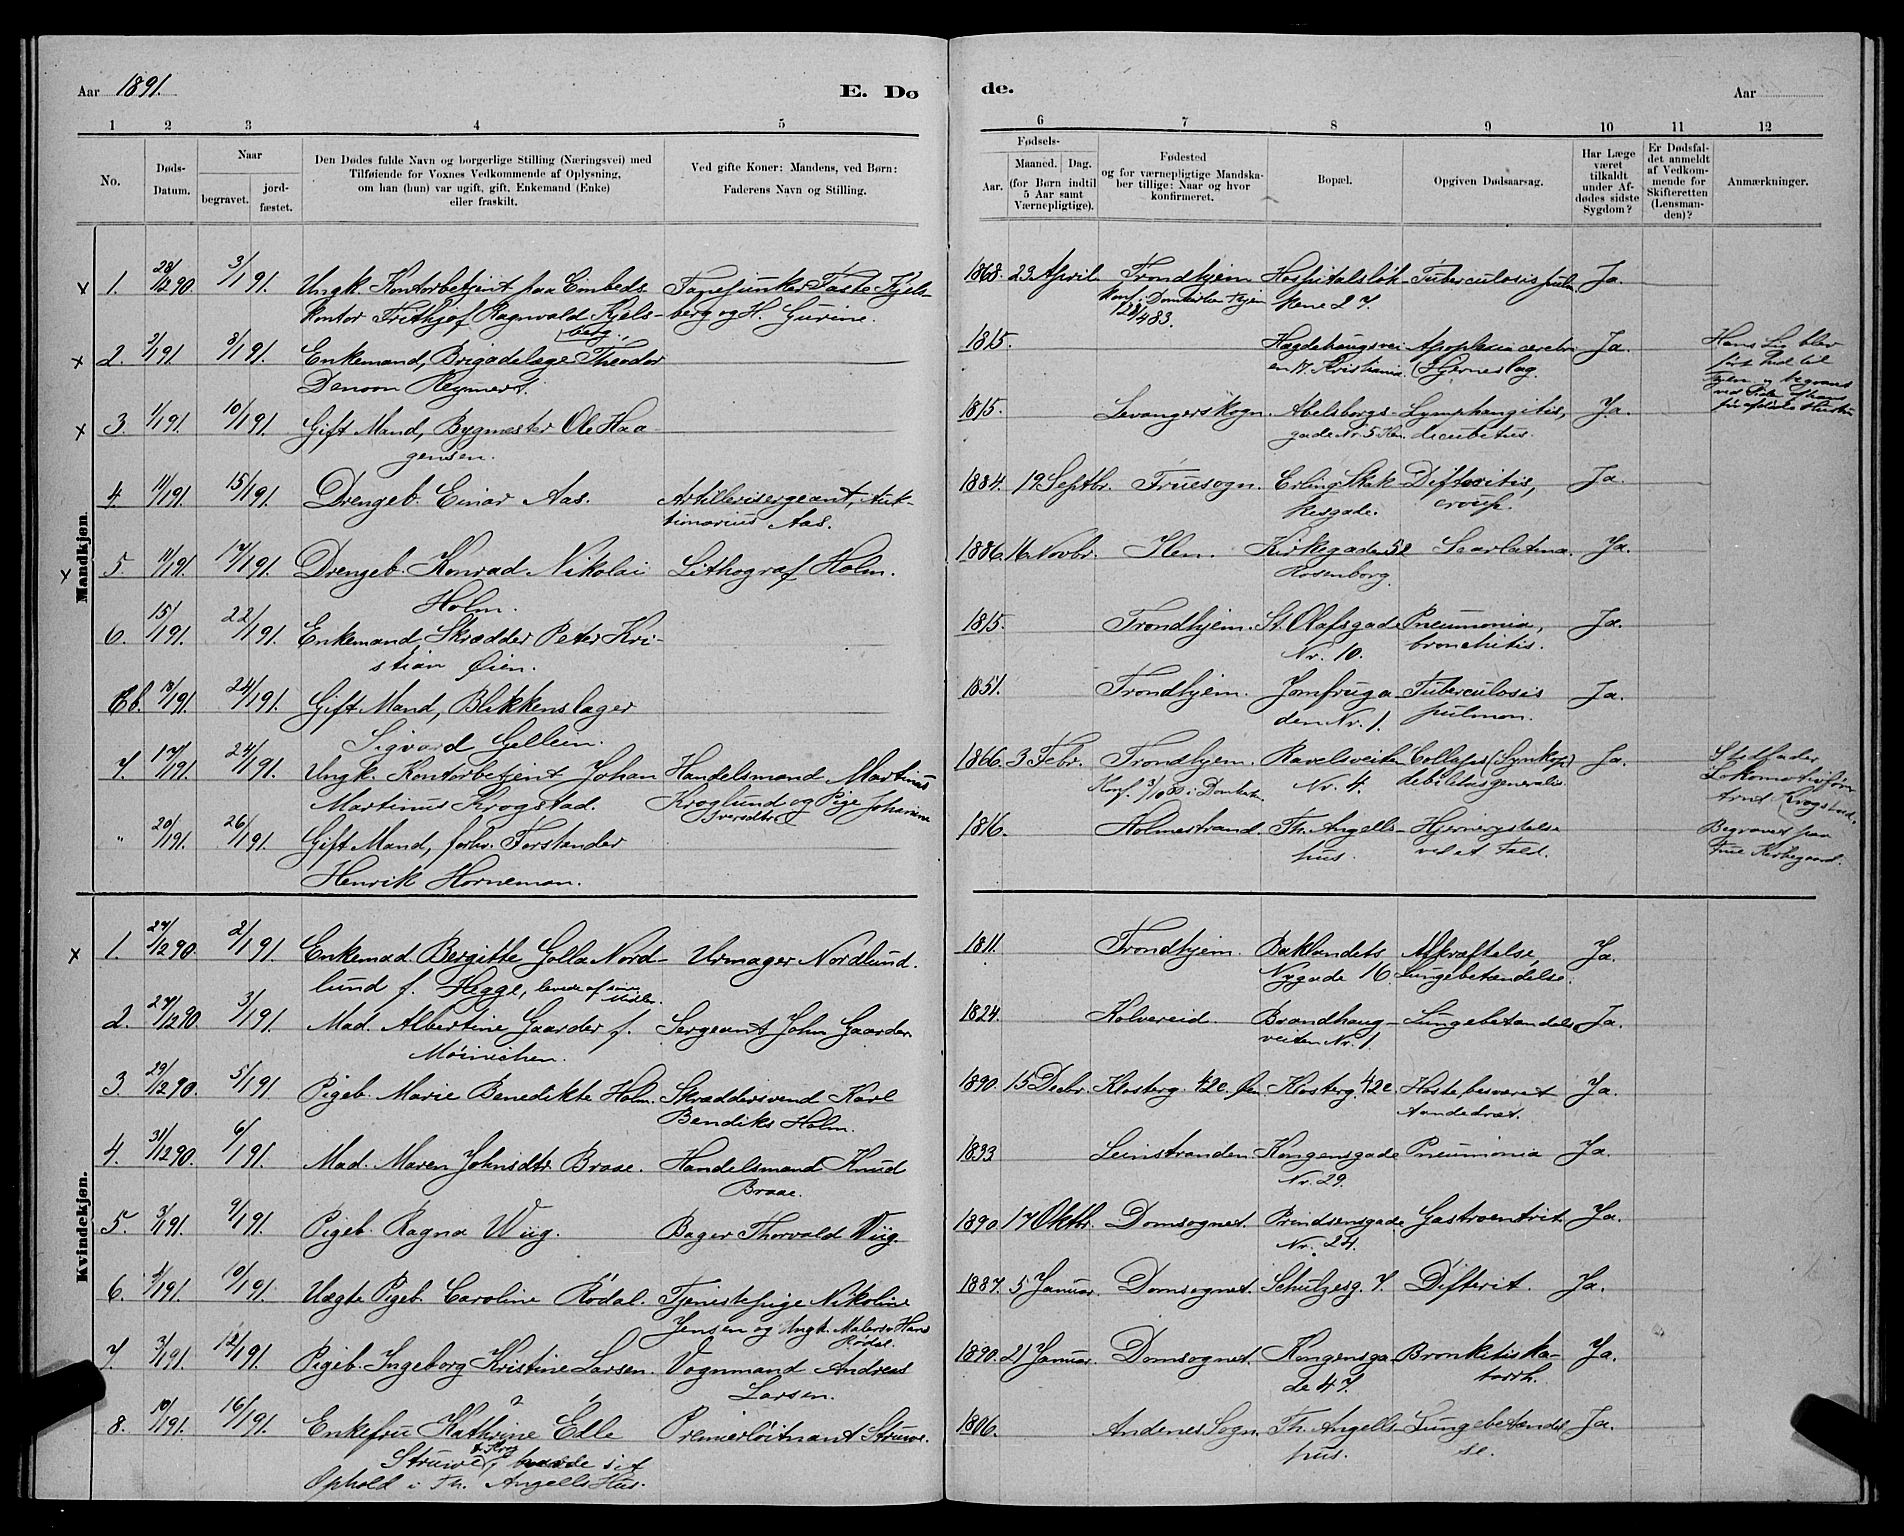 Aar 1891.
E. Dø
1 2 3 4 5
No.
Døds-Datum.
Naar
begravet.
jord-fæstet.
Den Dødes fulde Navn og borgerlige Stilling (Næringsvei) med
Tilføiende for Voxnes Vedkommende af Oplysning,
om han (hun) var ugift, gift, Enkemand (Enke)
eller fraskilt.
Ved gifte Koner: Mandens, ved Børn:
Faderens Navn og Stilling.
Mandkjøn.
x 1. 28/12 90. 3/1 91. Ungk. Kontorbetjent paa Embeds- Fanejunker Taste Kjels-
kontor Frithjof Ragnvald Kjels- berg og H. Gurine.
berg.
x 2. 2/1 91. 8/1 91. Enkemand, Brigadelæge Theodor
Denoon Reymert.
x 3. 1/1 91. 10/1 91. Gift Mand, Bygmester Ole Haa
gensen.
4. 11/1 91. 15/1 91. Drengeb. Einar Aas. Artillerisergeant, Auk-
tionarius Aas.
x 5. 11/1 91. 17/1 91. Drengeb. Konrad Nikolai Lithograf Holm.
Holm.
6. 15/1 91. 22/1 91. Enkemand, Skrædder Peter Kri-
stian Øien.
6b. 18/1 91. 24/1 91. Gift Mand, Blikkenslager
Sigvard Gellein.
7. 17/1 91. 24/1 91. Ungk. Kontorbetjent Johan Handelsmand Martinus
Martinus Krogstad. Kroglund og Pige Johanna
Iversdtr.
" 20/1 91. 26/1 91. Gift Mand, forhv. Forstander
Henrik Horneman.
Kvindekjøn.
x 1. 27/12 90. 2/1 91. Enkemad. Bergitte Golla Nord- Urmager Nordlund.
lund f. Hegge, levede af sine
Midler.
2. 27/12 90. 3/1 91. Mad. Albertine Gaarder f. Sergeant John Gaarder.
Möinichen.
3. 29/12 90. 5/1 91. Pigeb. Marie Benedikte Holm. Skræddersvend Karl
Bendiks Holm.
4. 31/12 90. 6/1 91. Mad. Maren Johnsdtr. Braae. Handelsmand Knud
Braae.
5. 3/1 91. 9/1 91. Pigeb. Ragna Wiig. Bager Thorvald Wiig.
6. 4/1 91. 10/1 91. Uægte Pigeb. Caroline Rödal. Tjenestepige Nikoline
Jensen og Ungk. Malersv. Hans
Rødal.
7. 3/1 91. 12/1 91. Pigeb. Ingeborg Kristine Larsen. Vognmand Andreas
Larsen.
8. 10/1 91. 16/1 91. Enkefru Kathrine Edle Premierløitnant Struwe.
Struwe f. Krog, havde sit
Ophold i Th. Angells Hus.
de.
Aar
6 7 8 9 10 11 12
Fødsels-
Aar.
Maaned. Dag.
(for Børn indtil
5 Aar samt
Værnepligtige).
Fødested
og for værnepligtige Mandska-
ber tillige: Naar og hvor
konfirmeret.
Bopæl.
Opgiven Dødsaarsag.
Har Læge
været
tilkaldt
under Af-
dødes sidste
Sygdom?
Er Dødsfal-
det anmeldt
af Vedkom-
mende for
Skifteretten
(Lensman-
den)?
Anmærkninger.
1868. 23 April Trondhjem Hospitalsløk- Tuberculosis pulm. Ja.
Konf. i Domkirken Thjem kene 27.
1815. Hægdehaugsvei Apoplexia cerebri Ja. Hans Lig blev
en 17. Kristiania. (Hjerneslag. ført hid til
Byen og begravet
ved Siden af hans
før afdøde Hustru
1815. Levanger Skogn. Abelsborgs- Lymphangitis, Ja.
gade Nr. 5 decubitus.
1884. 19 Septbr. Fruesogn. Erling Skak- Difteritis, Ja.
kesgade. croup.
1886. 16 Novbr. Ilen. Kirkegaden 52 Scarlatina. Ja.
Rosenborg.
1815. Trondhjem. St. Olafsgade Pneumonia, Ja.
Nr. 10. bronchitis.
1851. Trondhjem. Jomfruga Tuberculosis Ja.
den Nr. 1. pulmon.
1866. 3 Febr. Trondhjem. Ravelsveiten Collaps (Synkope) Ja. Stedfader
Konf. 3/10 80 i Domkirken Nr. 4. debilitas generalis. Lokomotivfører
Arnt Krogstad.
1816. Holmestrand. Th. Angells- Hjernerystelse Begravet paa
hus. ved et Fald. Frue Kirkegaard.
1811. Trondhjem. Baklandets Afkræftelse, Ja.
Nygade 16. Lungebetændelse.
1824. Kolvereid. Brandhaug- Lungebetændelse Ja.
veiten Nr. 1.
1890. 15 Decbr. Klosterg. 42c. Klosterg. 42c. Hoste, besværet Ja.
Aandedræt.
1833 Leinstranden. Kongensgade Pneumonia Ja.
Nr. 29.
1890. 17 Oktbr. Domsognet. Prindsensgade Gastroentrit. Ja.
Nr. 24.
1887. 5 Januar. Domsognet. Schulzesg. 7. Difterit. Ja.
1890. 21 Januar. Domsognet. Kongensga- Bronkitis ka- Ja.
de 47. tarrh.
1806. Andenes Sogn. Th. Angells- Lungebetændel Ja.
hus. se.